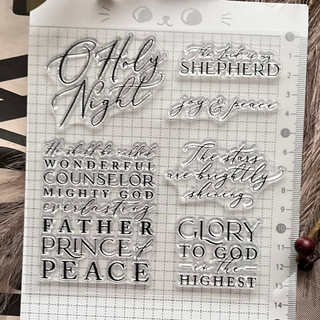 O Holy
Night
He shall be called
WONDERFUL
COUNSELOR
MIGHTY GOD
everlasting
FATHER
PRINCE of
PEACE
The Lord is my
SHEPHERD
joy & peace
The stars
are brightly
shining
GLORY
TO GOD
in the
HIGHEST
1
2
3
4
5
6
7
8
9
10
11
12
13
14